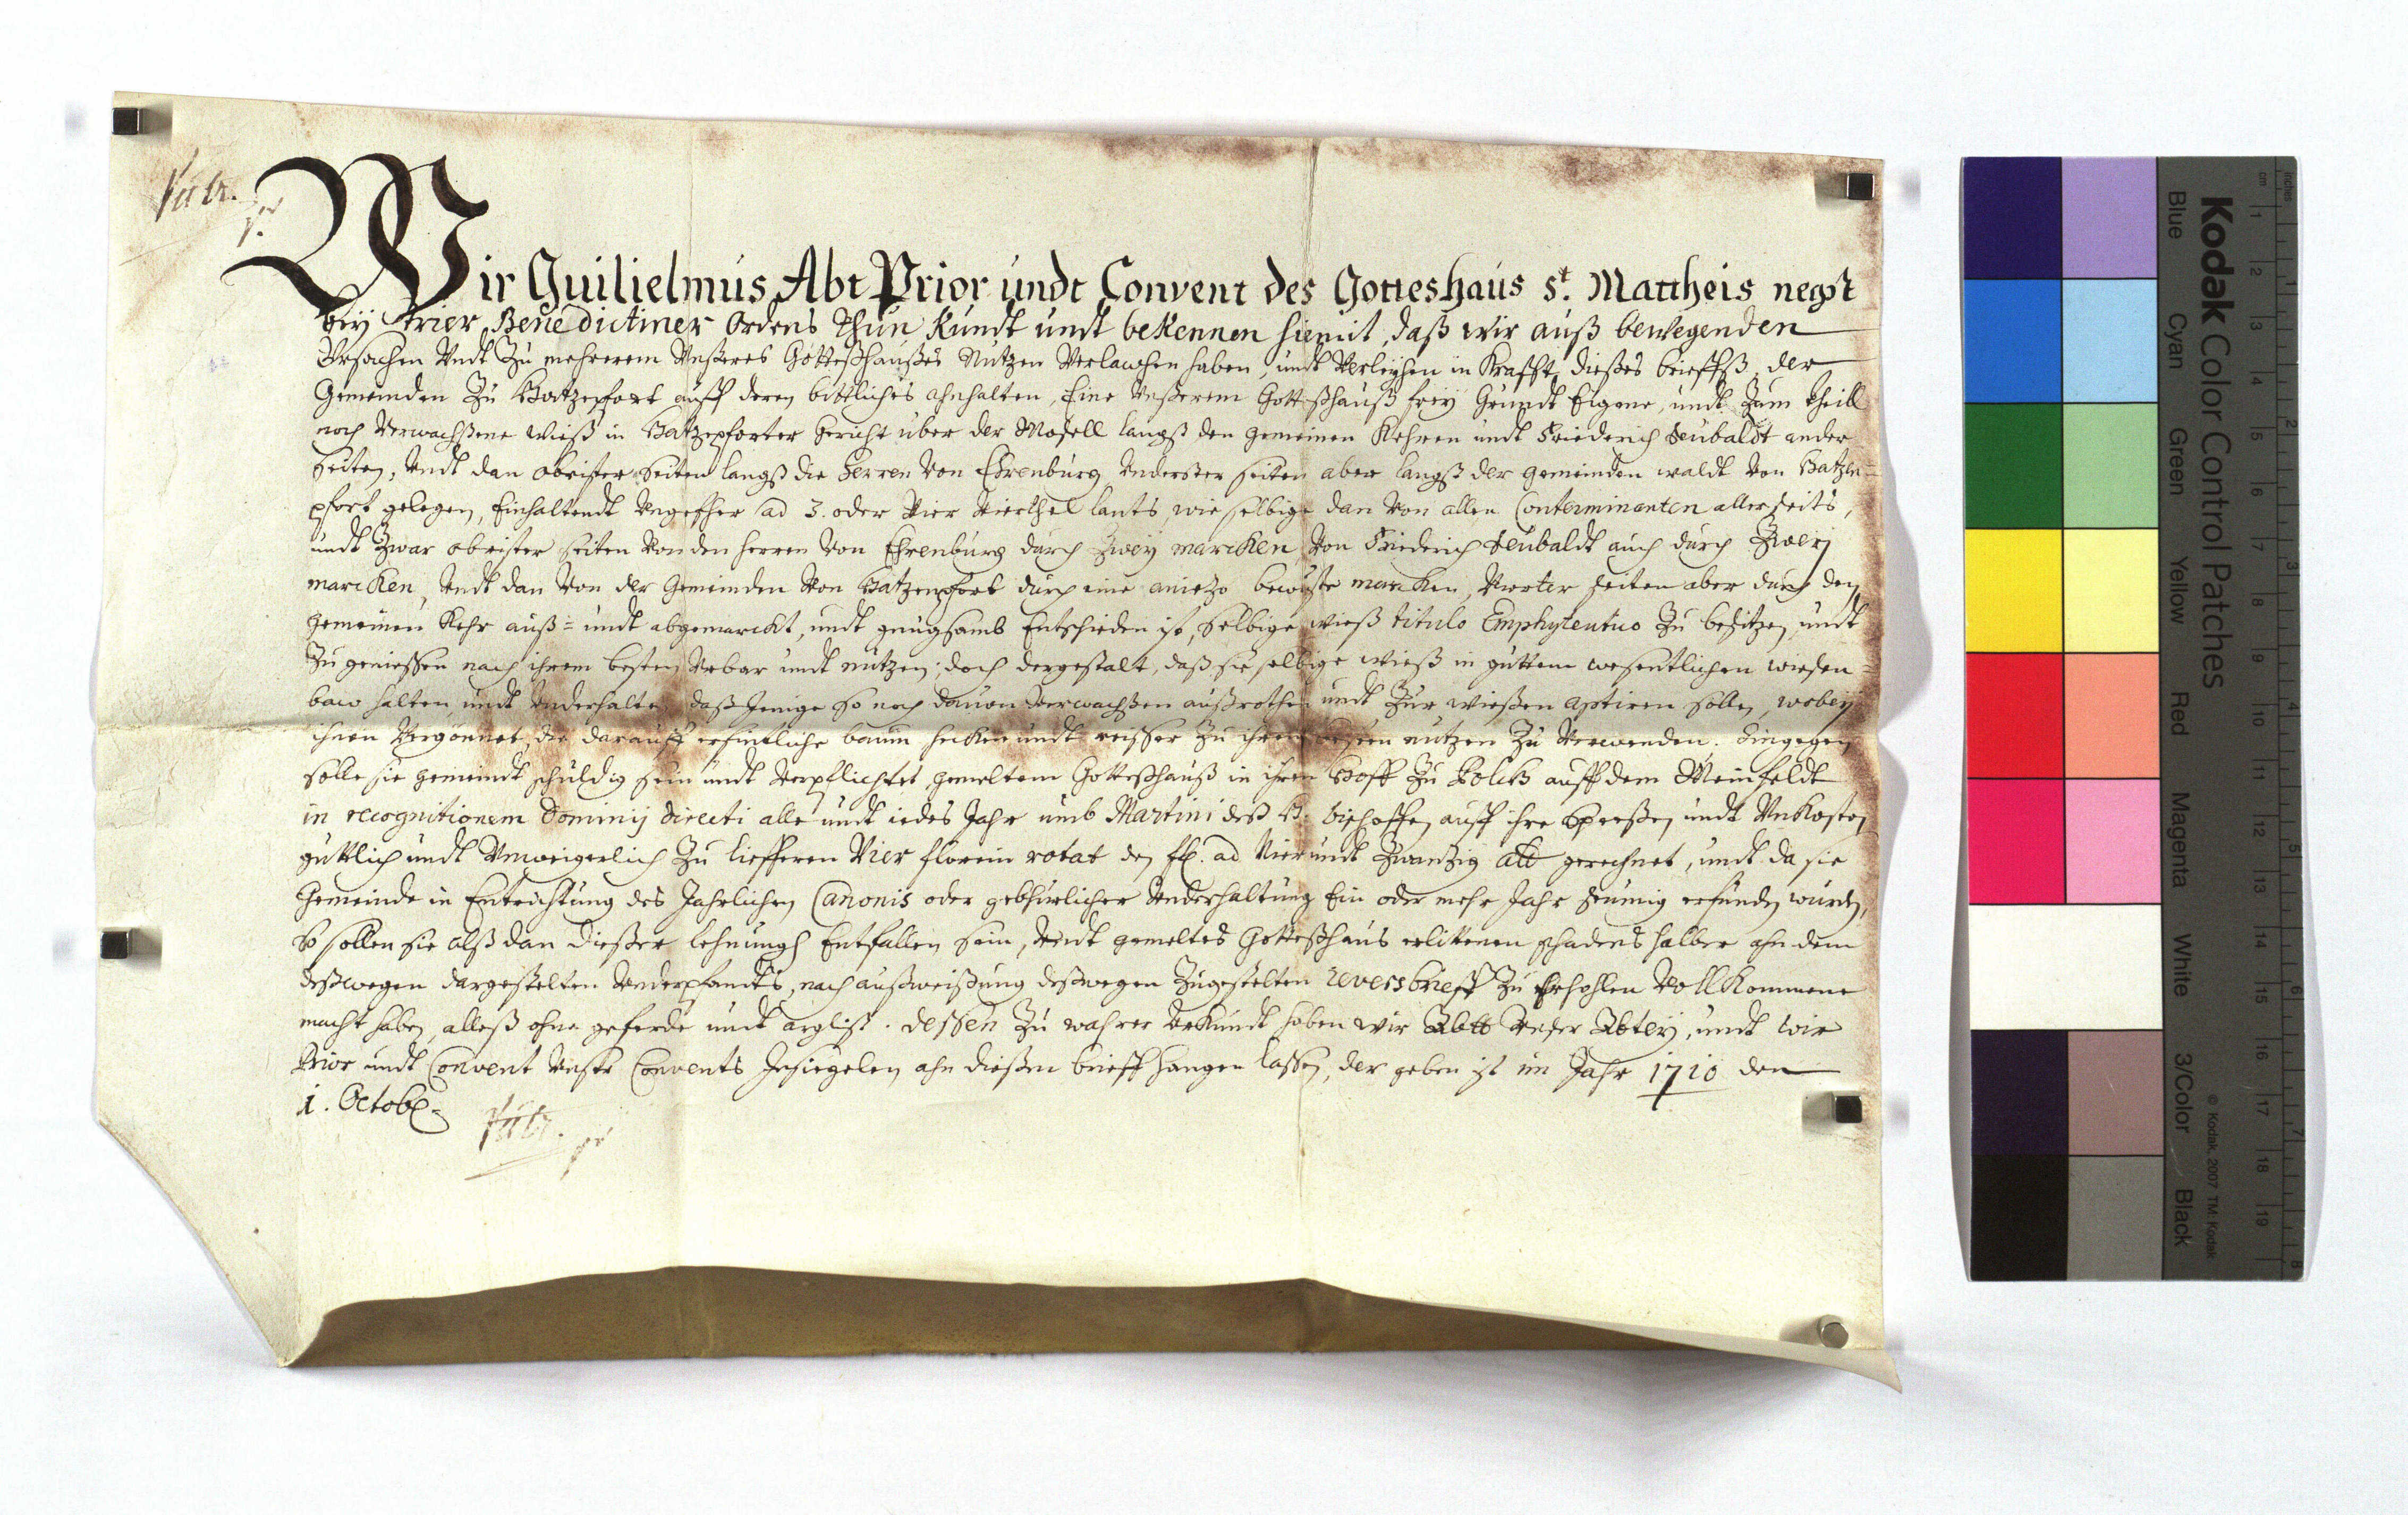 Wir Guilielmus Abt Prior undt Convent des Gotteshaus St. Mattheis negst
bey Trier Benedictiner Ordens Thun kundt undt bekennen hiemit, daß wir auß bewegenden
Ursachen undt zu mehrerem Unßeres Gotteßhaußes Nutzen Verlawhen haben, undt Verleyhen in Krafft dießes brieffß, der
Gemeinden zu Hatzepfort auff deren bittliches ahnhalten, Eine Unßerem Gotteßhauß frey Grundt Eigene, undt zum theill
noch Verwachßene Wieß in Hatzepforter Gericht über der Mosell langß den gemeinen Kehren undt Friederich Seubaldt ander
seiten, Undt dan obrister seiten langß die Herren Von Ehrenburg Underster seiten aber langß der gemeinden waldt Von Hatzen=
pfort gelegen, Einhaltendt Ungefher ad 3. oder Vier Vierthel lants, wie selbige dan Von allen Conterminanten allerseits,
undt zwar obrister seiten Von den Herren Von Ehrenburg durch zwey marcken Von Friederich Seubaldt auch durch zwey
marcken, Undt dan Von der Gemeinden Von Hatzenpfort durch eine aniezo bewuste marcken, Vierter seiten aber durch den
gemeinen Kehr auß= undt abgemarckt, undt gnugsamb Entschieden ist, selbige wieß titulo Emphyteutico zu besitzen undt
zu geniessen nach ihrem besten Urbar undt nutzen; doch dergestalt, daß sie selbige wieß in guttem wesentlichen wiesen=
baw halten undt Underhalten daß Jenige so noch dauon Verwachßen außrothen undt zur wießen aptiren sollen, wobey
ihnen Vergönnet, die darauff erfindliche baum hecken undt reisser zu ihrem besten nutzen zu Verwenden. Hingegen
solle sie gemeindt schuldig sein undt Verpflichtet gemeltem Gotteßhauß in ihren Hoff zu Polch auff dem Meinfeldt
in recognitionem Dominij directi alle undt iedes Jahr umb Martini deß H. bischoffen auff ihre Speeßen undt Unkosten
güttlich undt Unweigerlich zu lieffern Vier florein rotat den fl. ad Vierundt zwantzig alb gerechnet, undt da sie
Gemeinde in Entrichtung des Jahrlichen Canonis oder gebhürlicher Underhaltung Ein oder mehr Jahr seumig erfunden wurden,
So sollen sie alß dan dießer lehnungh Entfallen sein, Undt gemeltes Gotteßhaus erlittenen schadens halber ahn dem
deßwegen dargestelten Underpfandts, nach außweißung deßwegen zugestelten reversbrieff zu Erhohlen Vollkommene
macht haben, alleß ohne geferde undt arglist. Dessen zu wahrer Urkundt haben wir Abtt Unser Abtey, undt wir
Prior undt Convent Unsers Convents Insiegelen ahn dießen brieff hangen lassen, der geben ist im Jahr 1710 den
1. Octobr.
Kodak Color Control Patches
Blue Cyan Green Yellow Red Magenta White 3/Color Black
© Kodak, 2007 TM: Kodak
cm 1 2 3 4 5 6 7 8 9 10 11 12 13 14 15 16 17 18 19
inches 1 2 3 4 5 6 7 8